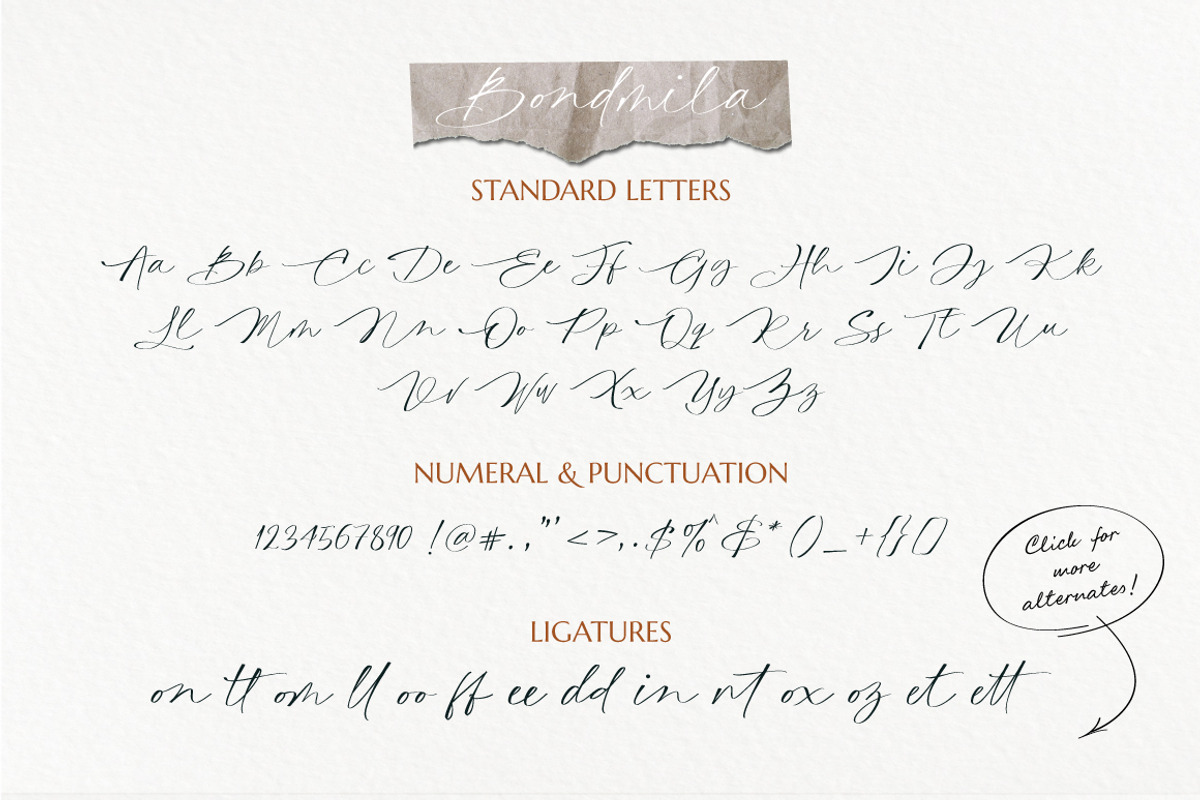 Bondmila
STANDARD LETTERS
Aa Bb Cc Dd Ee Ff Gg Hh Ii Jj Kk
Ll Mm Nn Oo Pp Qq Rr Ss Tt Uu
Vv Ww Xx Yy Zz
NUMERAL & PUNCTUATION
1234567890 !@#.,"' <>,.$%^&* ()_+{}[]
LIGATURES
on tt om ll oo ff ee dd in nt ox oz et ett
Click for
more
alternates!